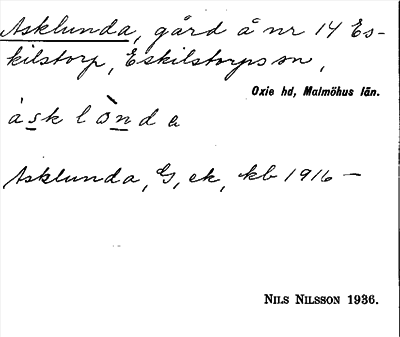 Asklunda, gård å nr 14 Es-
kilstorp, Eskilstorps sn,
Oxie hd, Malmöhus län.
àsklònda
Asklunda, G, ek, kb 1916 —
NILS NILSSON 1936.